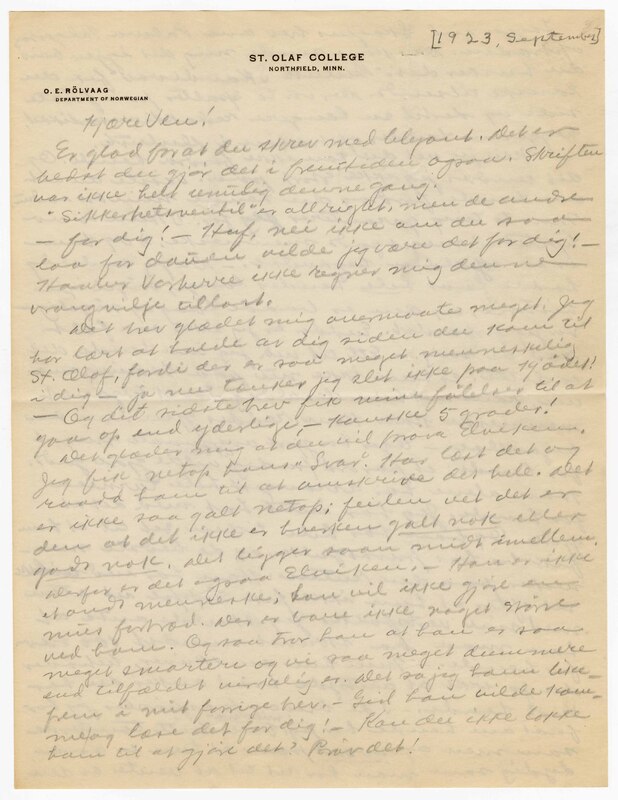 [1923, September]
ST. OLAF COLLEGE
NORTHFIELD, MINN.
O. E. RÖLVAAG
DEPARTMENT OF NORWEGIAN
Kjære Ven!
Er glad for at du skrev med blyant. Det er
bedst du gjør det i fremtiden ogsaa. Skriften
var ikke helt umulig denne gang.
"Sikkerhetsventil" er allright, men de andre
— for dig! — Huf, nei ikke om du saa
laa for døden vilde jeg være det for dig! —
Vorherre ikke regner mig denne
vrangvilje tillast.
Dit brev glædet mig overmaate meget. Jeg
har lært at holde av dig siden du kom til
St. Olaf, fordi der er saa meget menneskelig
i dig — ja nu tænker jeg slet ikke paa kjødet!
— Og dit sidste brev fik mine følelser til at
gaa op end yderligere, — kanske 5 grader!
Det glæder mig at du vil prøva Elviken.
Jeg fik netop hans "Svar". Har læst det og
raadd ham til at omskrive det hele. Det
er ikke saa galt netop; feilen ved det er
den at det ikke er hverken galt nok eller
godt nok. Det ligger saan midt imellem.
Derfor er det ogsaa Elviken. — Han er ikke
et ondt menneske; han vil ikke gjøre en
mus fortræd. Der er bare ikke noget større
ved ham. Og saa tror han at han er saa
meget smartere og vi saa meget dummere
end tilfældet virkelig er. Det sa jeg ham like-
frem i mit forrige brev. — Gid han vilde kom-
me og læse det for dig! — Kan du ikke lokke
ham til at gjøre det? Prøv det!